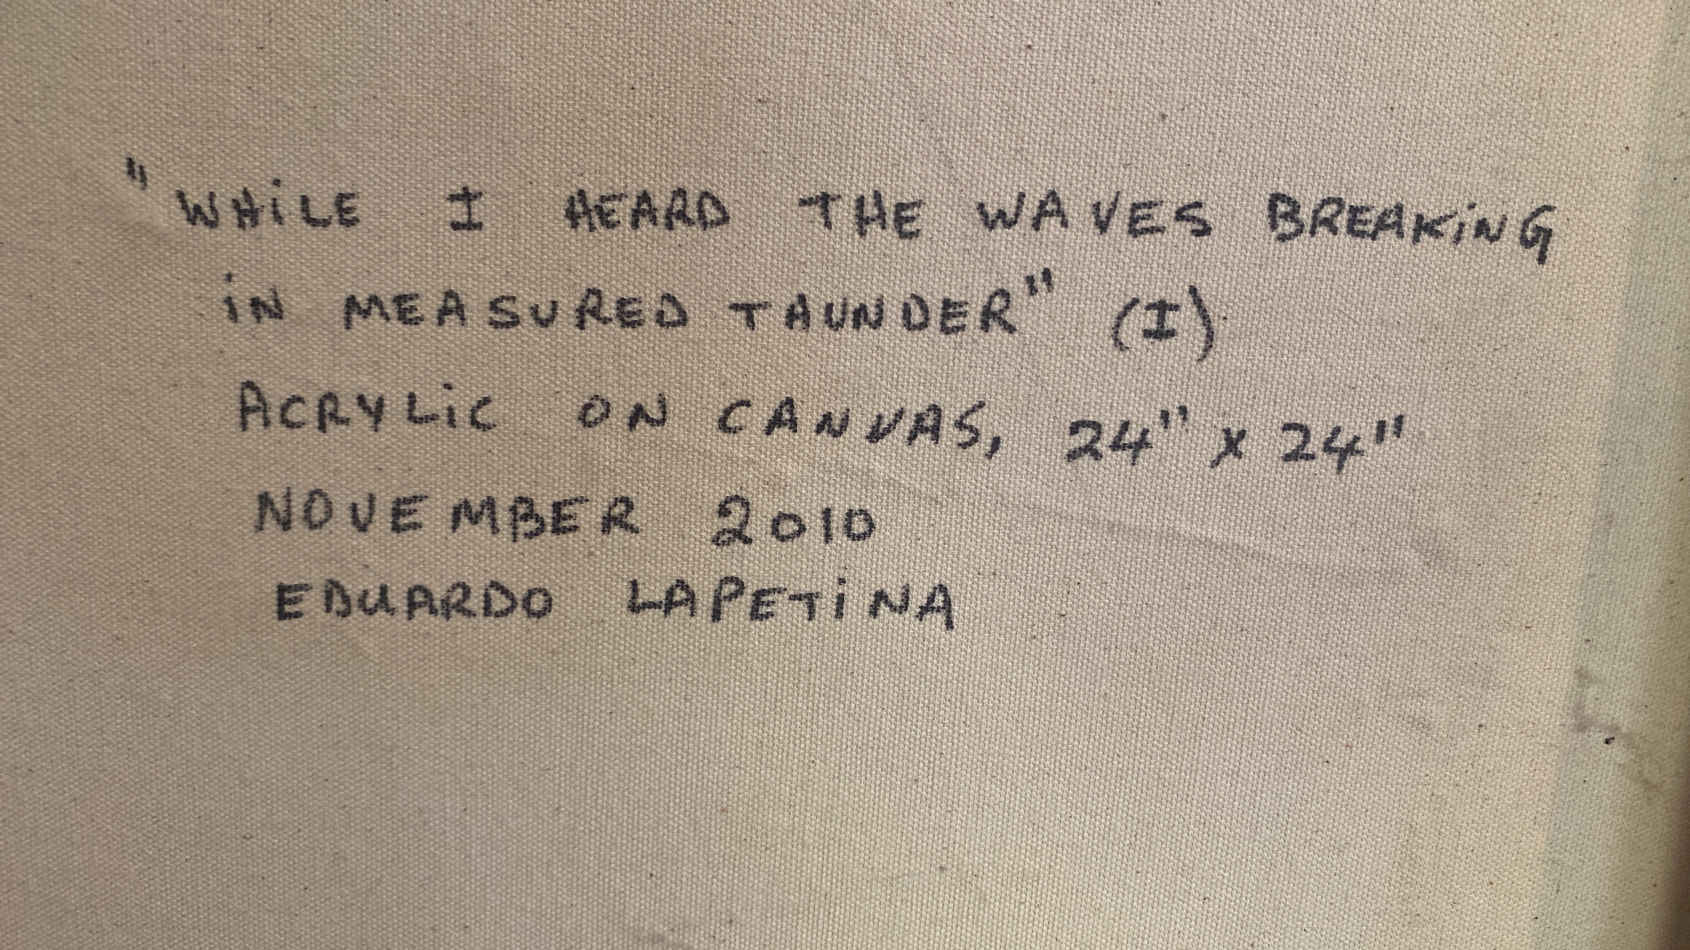 "WHiLE I HEARD THE WAVES BREAKiNG
iN MEASURED THUNDER" (I)
ACRYLiC ON CANVAS, 24" x 24"
NOVEMBER 2010
EDUARDO LAPETiNA